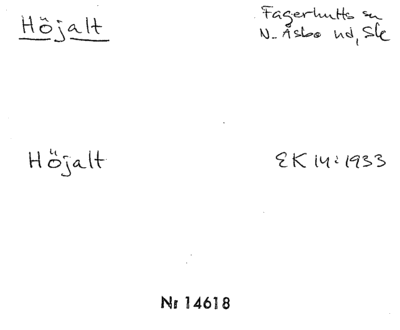 Höjalt
Fagerhults sn
N. Åsbo hd, Sk
Höjalt
EK 14: 1933
Nr 14618